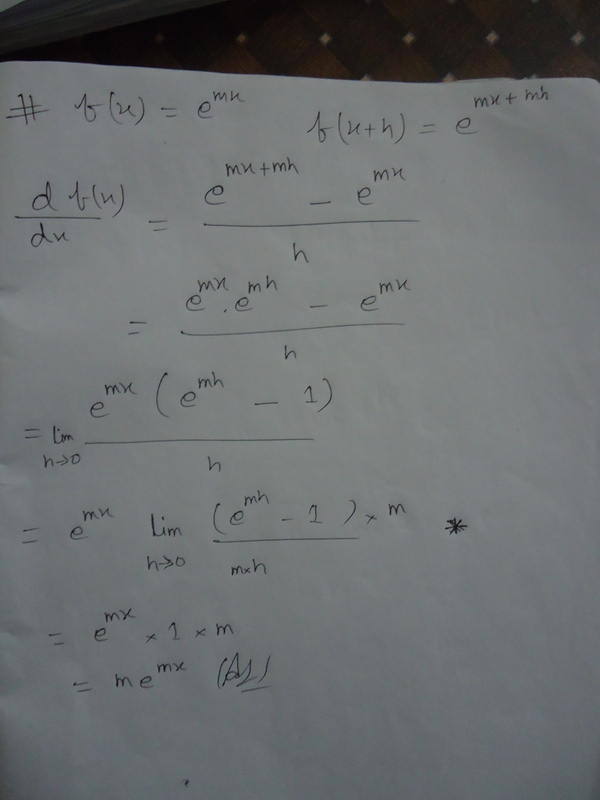 # f(x) = e^{mx} f(x+h) = e^{mx+mh}
\frac{d f(x)}{dx} = \frac{e^{mx+mh} - e^{mx}}{h}
= \frac{e^{mx} . e^{mh} - e^{mx}}{h}
= \lim_{h→0} \frac{e^{mx} (e^{mh} - 1)}{h}
= e^{mx} \lim_{h→0} \frac{(e^{mh} - 1)}{m×h} × m *
= e^{mx} × 1 × m
= m e^{mx}